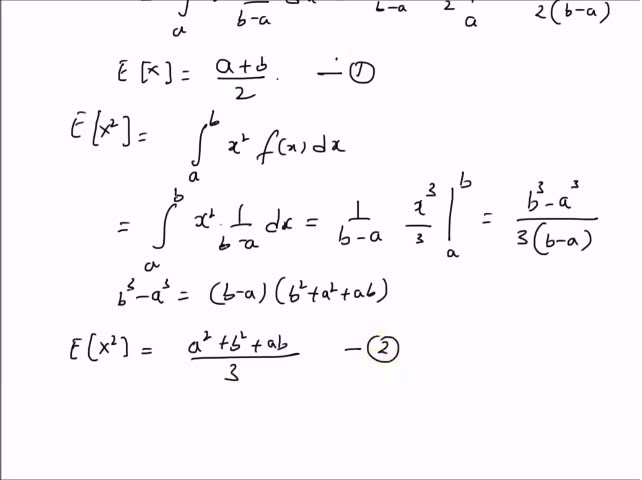 a b-a b-a 2 a 2(b-a)
E[x] = a+b/2. — ①
E[x²] = ∫ₐᵇ x² f(x) dx
= ∫ₐᵇ x² · 1/b-a dx = 1/b-a x³/3 |ₐᵇ = b³-a³/3(b-a)
b³-a³ = (b-a)(b²+a²+ab)
E[x²] = a²+b²+ab/3 — ②